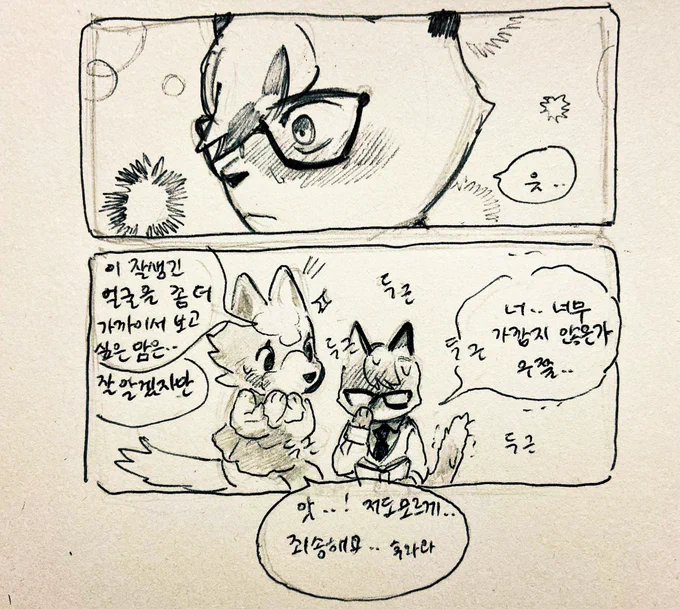 읏..
이 잘생긴
얼굴을 좀 더
가까이서 보고
싶은 맘은..
잘 알겠지만
너.. 너무
가깝지 않은가
우쭐..
두근
두근
두근
두근
두근
앗..! 저도모르게..
죄송해요.. 숙라과